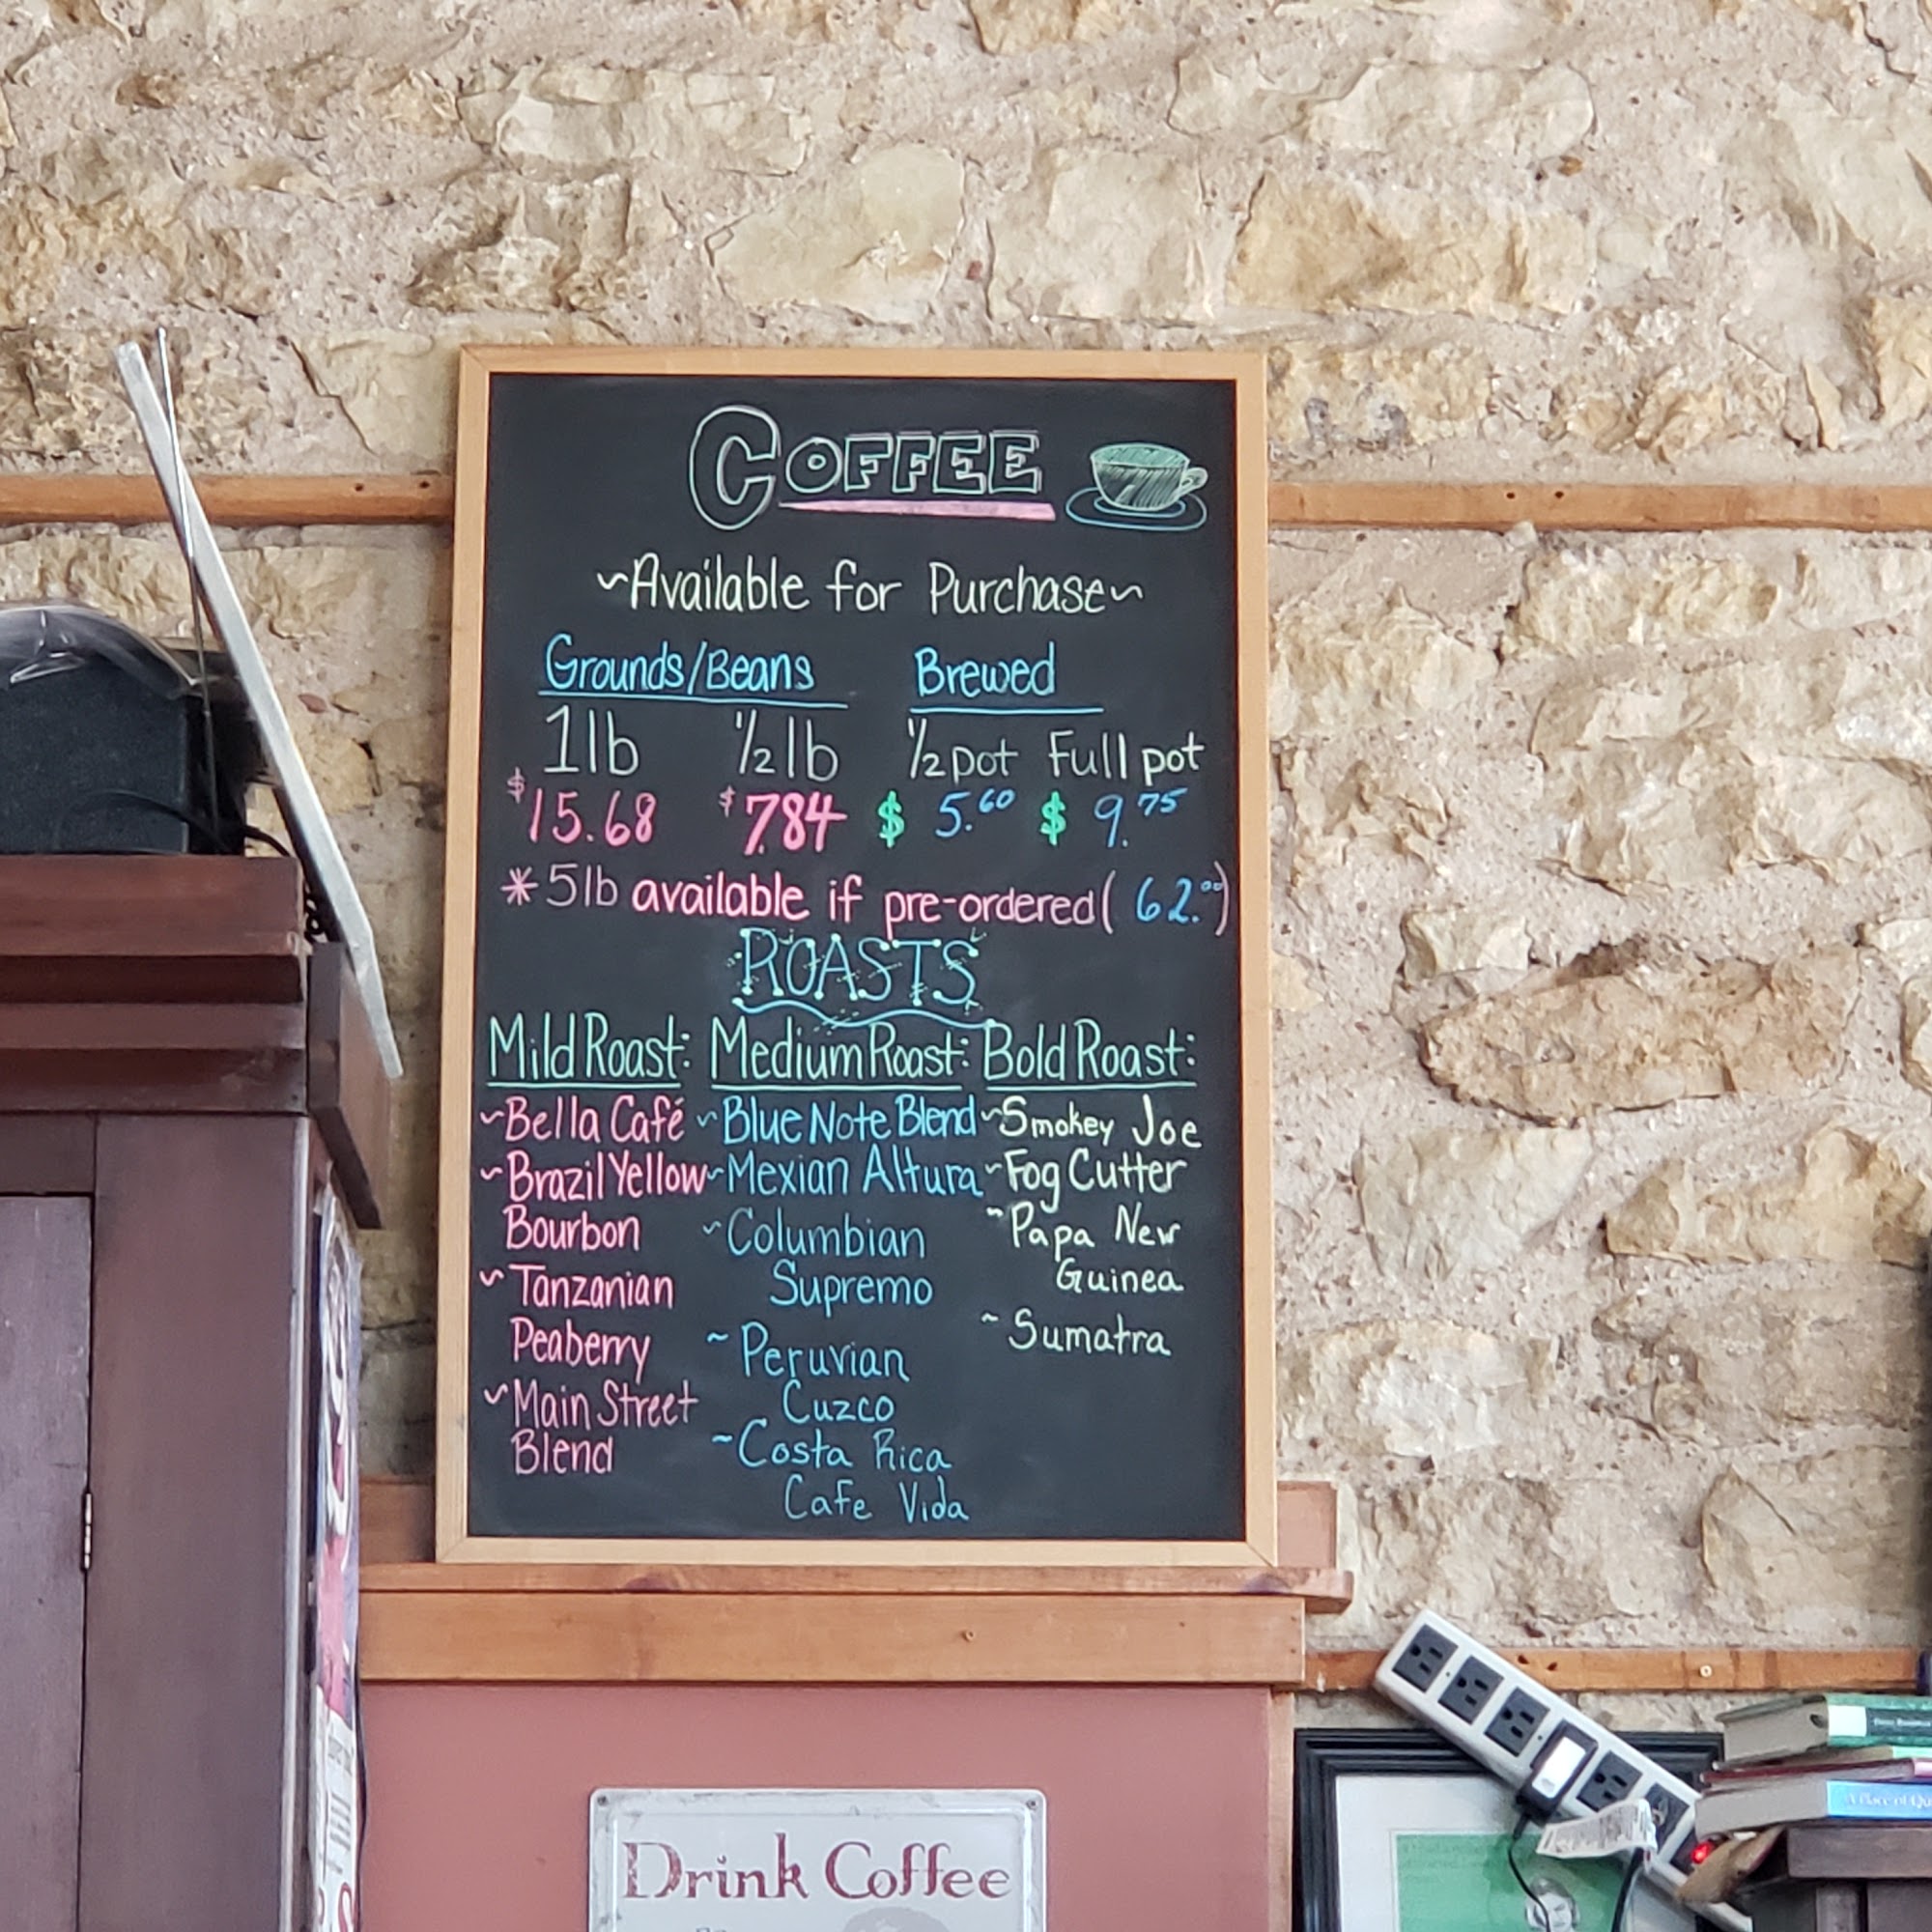 COFFEE
~Available for Purchase~
Grounds/Beans Brewed
1lb ½lb ½pot Full pot
$15.68 $7.84 $5.60 $9.75
*5lb available if pre-ordered( 62.00)
ROASTS
Mild Roast: Medium Roast: Bold Roast:
~Bella Café
~Brazil Yellow
Bourbon
~Tanzanian
Peaberry
~Main Street
Blend
~Blue Note Blend
~Mexian Altura
~Columbian
Supremo
~Peruvian
Cuzco
~Costa Rica
Cafe Vida
~Smokey Joe
~Fog Cutter
~Papa New
Guinea
~Sumatra
Drink Coffee